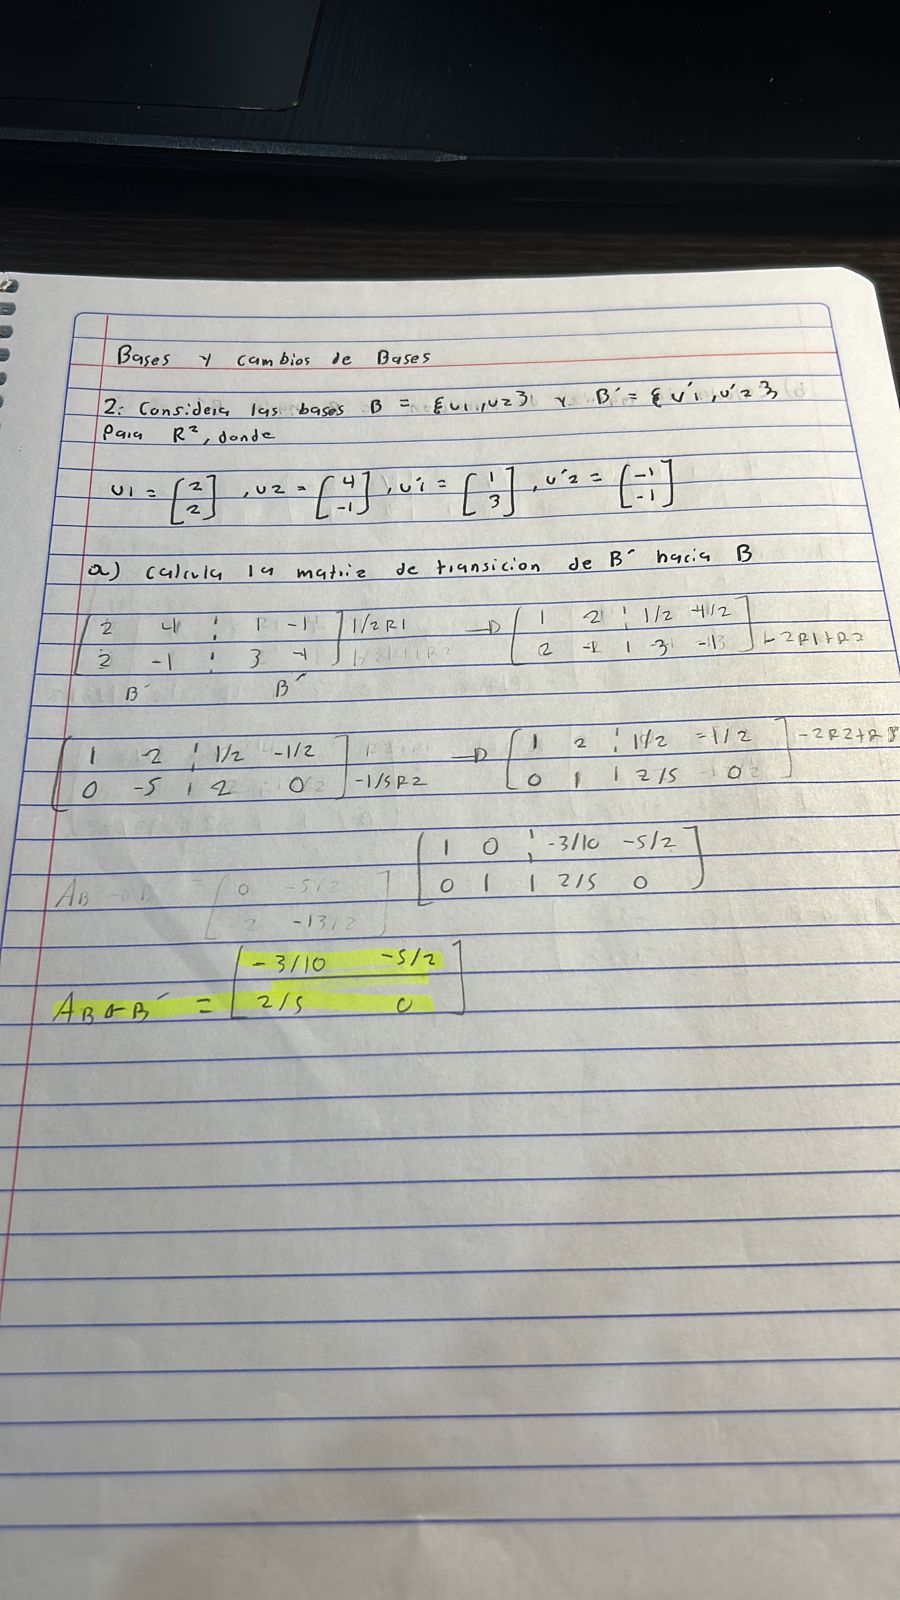 Bases y cambios de Bases
2: Considera las bases B = {u1, u2} y B´ = {u´1, u´2}
Para R², donde
u1 = [2 2], u2 = [4 -1], u´1 = [1 3], u´2 = [-1 -1]
a) calcula la matriz de transicion de B´ hacia B
[2 4 ¦ 1 -1] 1/2R1 → [1 2 ¦ 1/2 -1/2]
[2 -1 ¦ 3 -1] [2 -1 ¦ 3 -1] -2R1+R2
B´ B´
[1 2 ¦ 1/2 -1/2] → [1 2 ¦ 1/2 -1/2] -2R2+R
[0 -5 ¦ 2 0] -1/5R2 [0 1 ¦ 2/5 0]
[1 0 ¦ -3/10 -5/2]
[0 1 ¦ 2/5 0]
[0 -5/2]
[-2 -13/2]
[-3/10 -5/2]
AB←B´ = [2/5 0]